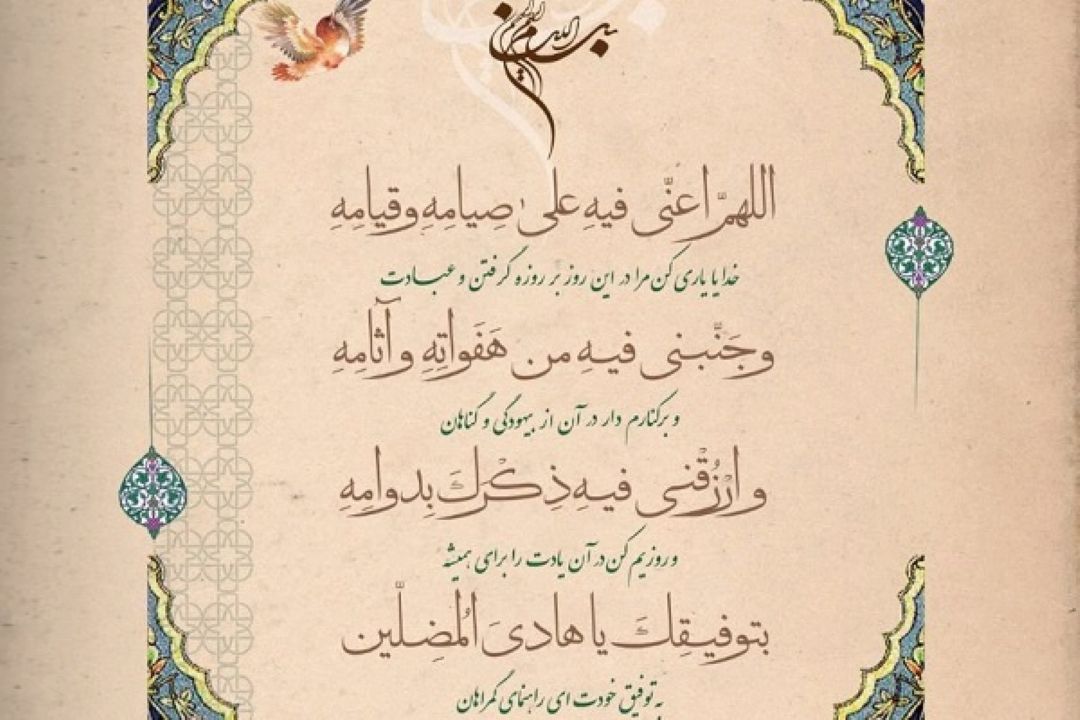 اللهمَّ اعنّی فیهِ علیٰ صِیامِهِ وقیامِهِ
خدایا یاری کن مرا در این روز بر روزه گرفتن و عبادت
وجَنَّبنی فیهِ من هَفَواتِهِ وآثامِهِ
و برکنارم دار در آن از بیهودگی و گناهان
وارْزُقْنی فیهِ ذِکْرَكَ بِدوامِهِ
و روزیم کن در آن یادت را برای همیشه
بتوفیقِكَ یا هادیَ المُضِلّین
به توفیق خودت ای راهنمای گمراهان